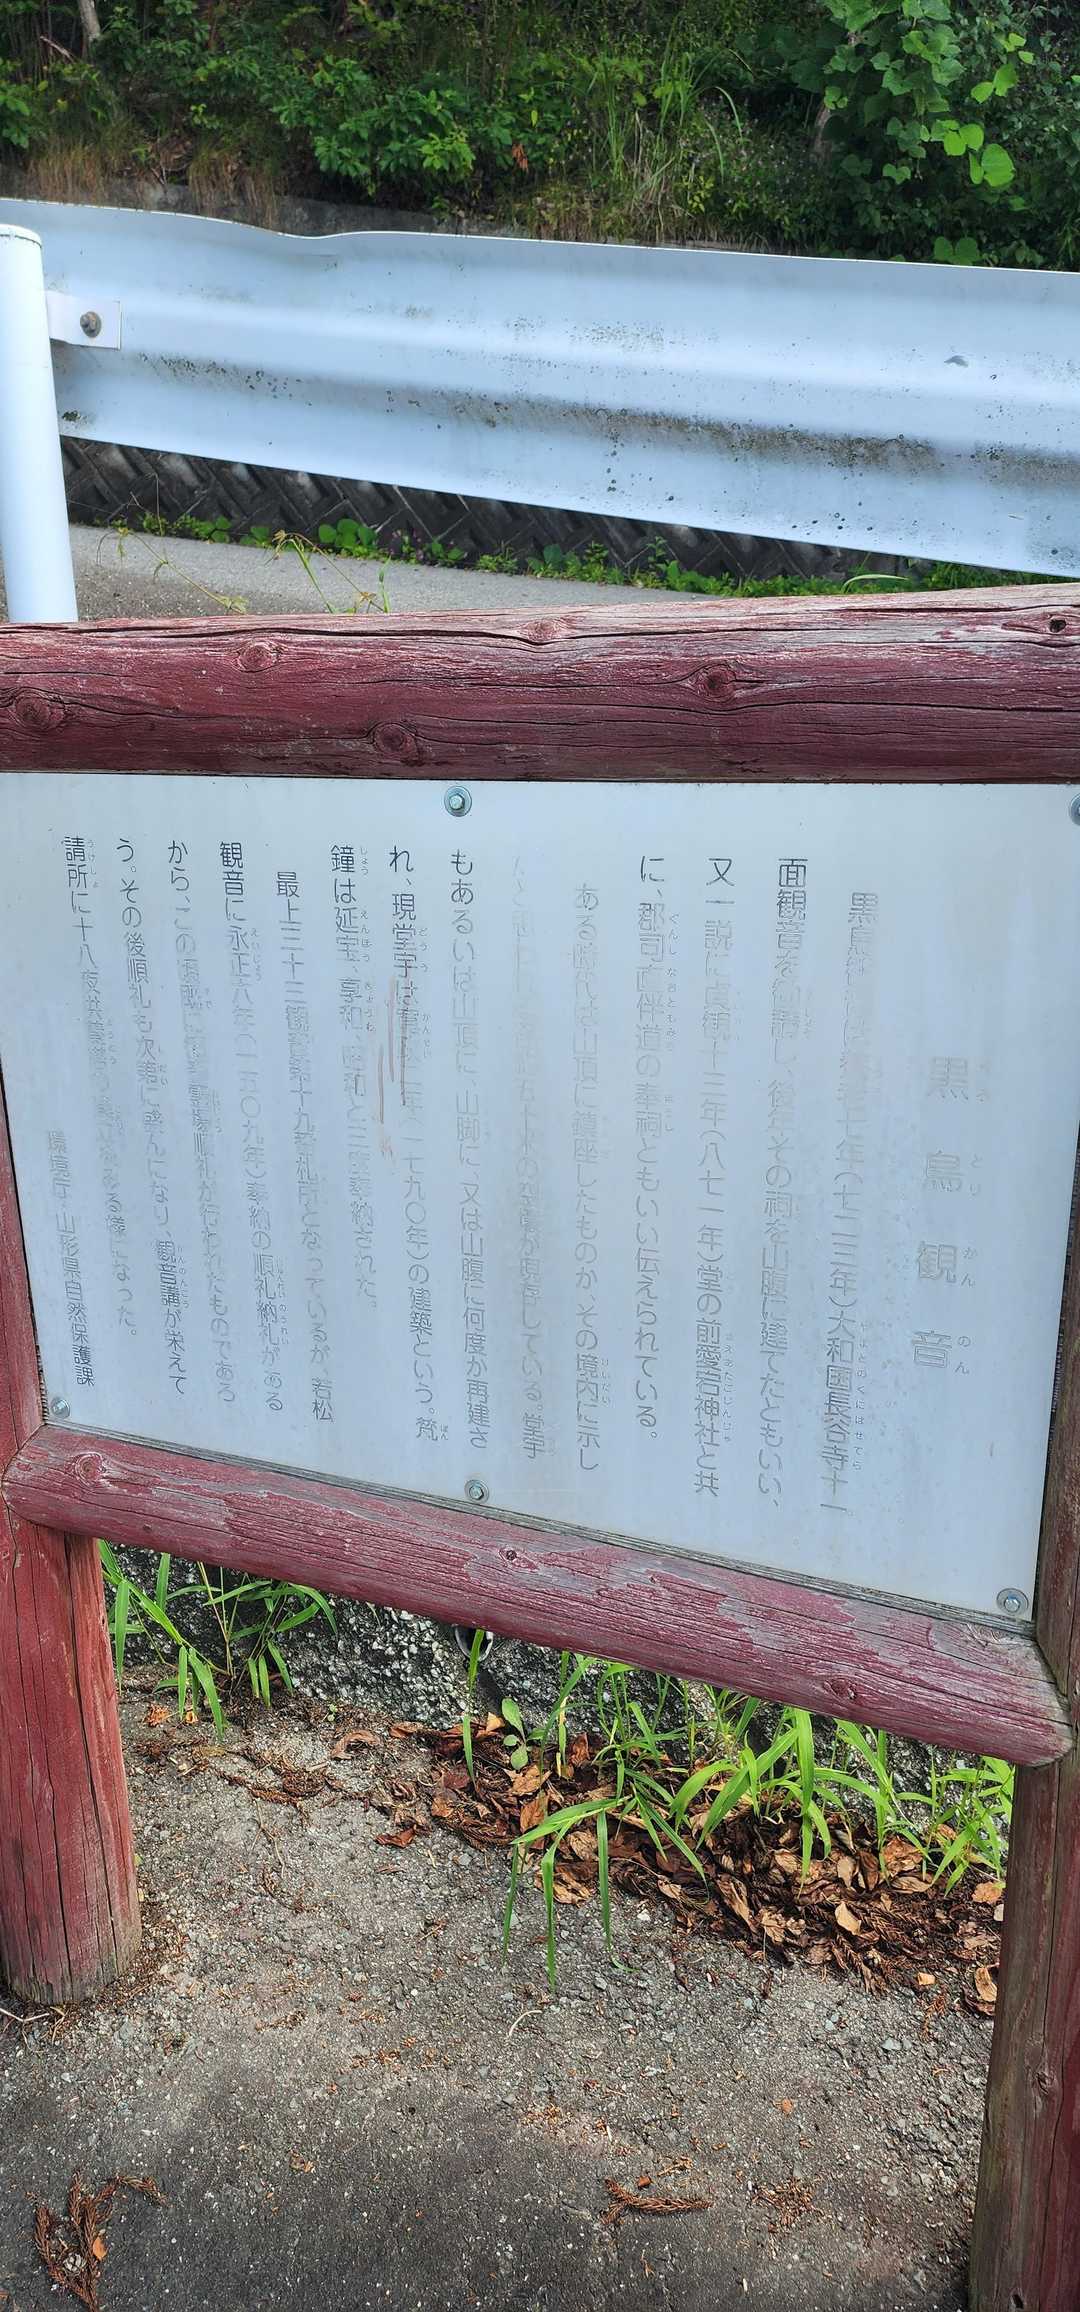 黒鳥観音
黒鳥観音は養老七年（七二三年）大和國長谷寺十一
面観音を勧請し、後年その祠を山腹に建てたともいい、
又一説に貞観十三年（八七一年）堂の前愛宕神社と共
に、郡司直伴道の奉祠ともいい伝えられている。
ある時代は山頂に鎮座したものか、その境内に示し
が現存している。堂宇
もあるいは山頂に、山脚に、又は山腹に何度か再建さ
れ、現堂宇は寛政二年（一七九〇年）の建築という。梵
鐘は延宝、享和、昭和と三度奉納された。
最上三十三観音第十九番札所となっているが、若松
観音に永正六年（一五〇九年）奉納の順礼納札がある
から、この頃既に霊場順礼が行われたものであろ
う。その後順礼も次第に盛んになり、観音講が栄えて
請所に十八夜供養塔の なる様になった。
環境庁・山形県自然保護課